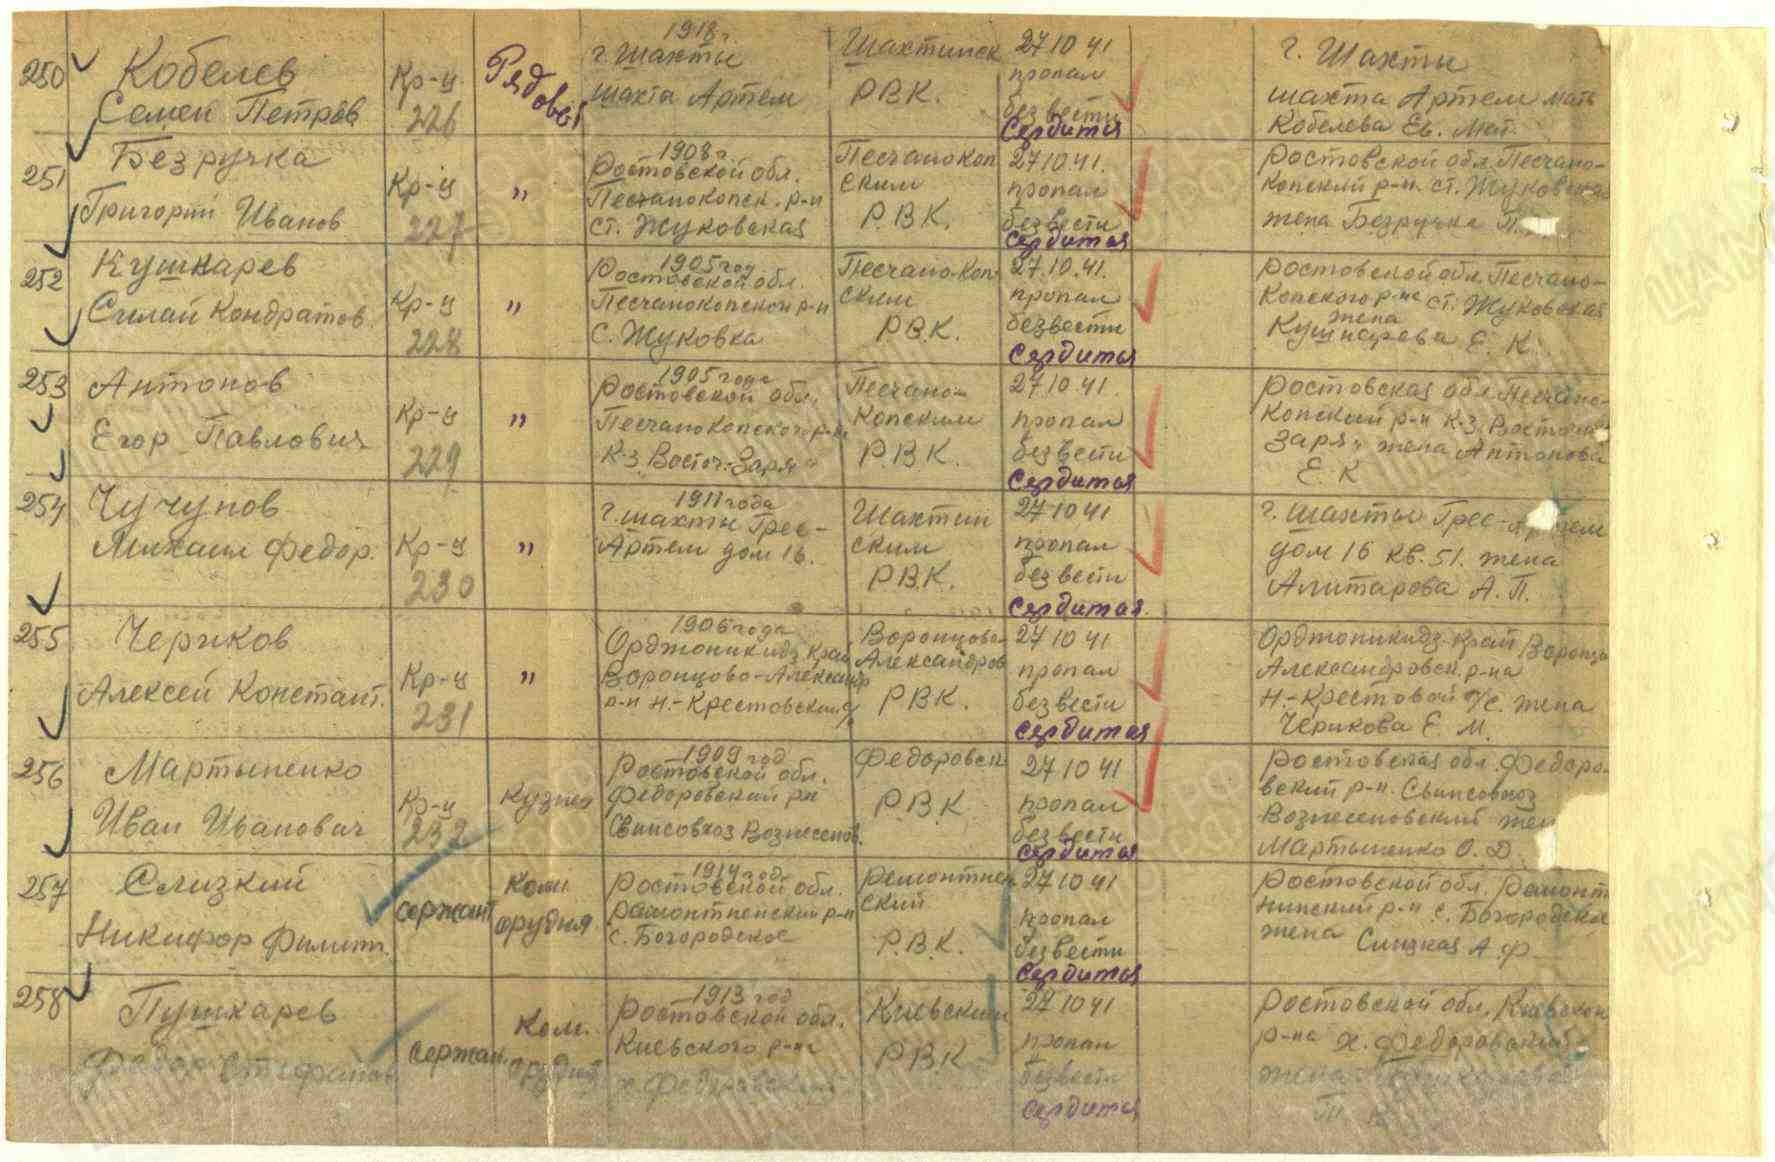 250 Кобелев Семен Петров
Кр-ц 226
Рядовой
1918 г. г. Шахты шахта Артем
Шахтинск РВК.
27 10 41 пропал без вести Сердитая
г. Шахты шахта Артем мать Кобелева Ев. Мат.
251 Безручка Григорий Иванов
Кр-ц 227
"
1908 г. Ростовской обл. Песчанокопск. р-н ст. Жуковская
Песчанокопским Р.В.К.
27 10 41. пропал безвести Сердитая
Ростовской обл. Песчано-копский р-н. ст. Жуковская жена Безручка П.
252 Кушнарев Силай Кондратов.
Кр-ц 228
"
1905 год Ростовской обл. Песчанокопской р-н с. Жуковка
Песчано-Копским РВК.
27.10.41. пропал безвести Сердитая
Ростовской обл. Песчано-Копского р-на ст. Жуковская жена Кушнарева Е. К.
253 Антонов Егор Павлович
Кр-ц 229
"
1905 года Ростовской обл. Песчанокопского р-на К-з „Восточ. Заря"
Песчано-Копским Р.В.К.
27 10 41. пропал безвести Сердитая
Ростовская обл. Песчано-Копский р-н К-з „Восточная Заря" жена Антонова Е. К
254 Чучунов Михаил Федор.
Кр-ц 230
"
1911 года г. шахты Грес-Артем дом 16.
Шахтинским Р.В.К.
27 10 41 пропал безвести Сердитая
г. Шахты Грес-Артем дом 16 кв. 51. жена Алитарова А. П.
255 Чериков Алексей Констант.
Кр-ц 231
"
1906 года Орджоникидз край Воронцово-Александр р-н Н.-Крестовский
Воронцово-Александров РВК.
27 10 41 пропал безвести Сердитая
Орджоникидз. край Воронцо Александровск. р-на Н.-Крестовой с/с. жена Черикова Е. М.
256 Мартыненко Иван Иванович
Кр-ц 232
Кузнец
1909 год Ростовской обл. Федоровский рн Свинсовхоз Вознесенов.
Федоровск РВК
27 10 41 пропал безвести Сердитая
Ростовская обл. Федоровский р-н. Свинсовхоз Вознесеновский жен Мартыненко О. Д.
257 Слизкий Никифор Филипп.
сержант
Ком. орудия
1914 год Ростовской обл. Ремонтненский р-н с. Богородское
Ремонтненский Р.В.К.
27 10 41 пропал безвести Сердитая
Ростовской обл. Ремонтнинский р-н с. Богородское жена Слизкая А. Ф
258 Пушкарев Федор Стефанов
сержан.
Ком. орудия
1913 год Ростовской обл. Киевского р-на х. Федоровский
Киевским РВК
27 10 41 пропал безвести Сердитая
Ростовской обл. Киевской р-на х. Федоровский жена Пушкарева